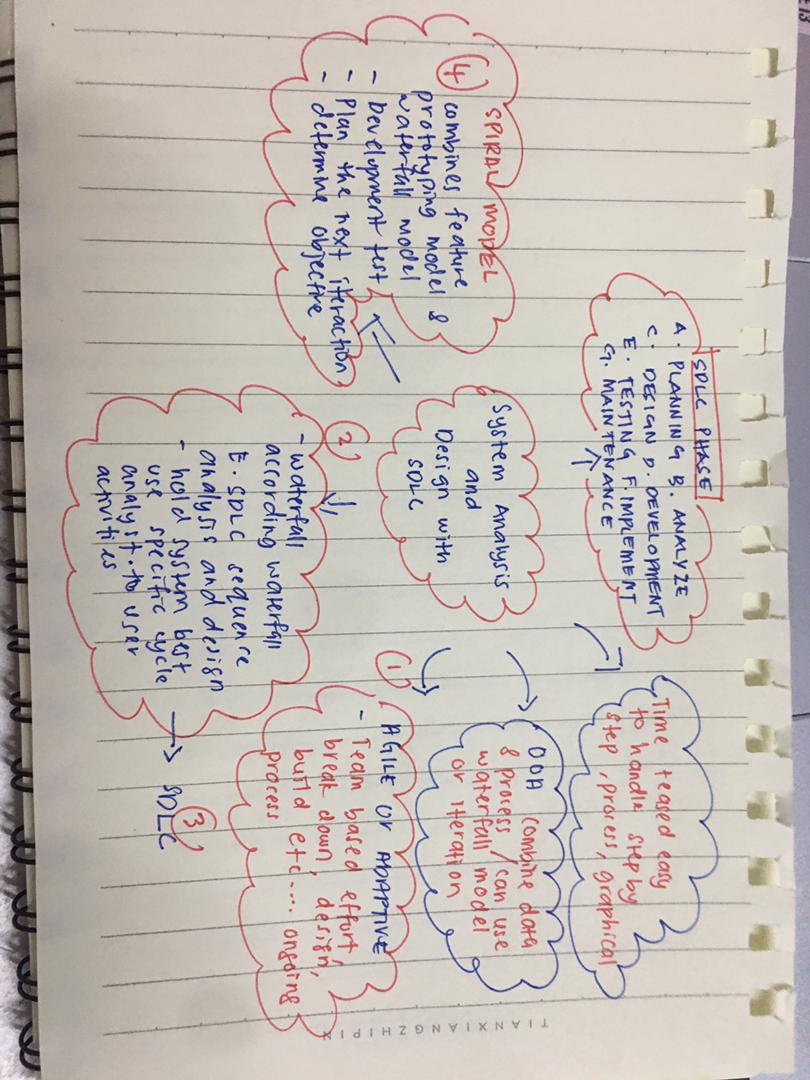 SDLC PHASE
A. PLANNING B. ANALYZE
C. DESIGN D. DEVELOPMENT
E. TESTING F. IMPLEMENT
G. MAINTENANCE
Time teased easy
to handle step by
step, process, graphical
SPIRAL MODEL
4
combines feature
prototyping model &
waterfall model
- Development test
- Plan the next iteraction
- determine objective
System Analysis
and
Design with
SDLC
OOA combine data
& process / can use
waterfall model
or iteration
1
AGILE or ADAPTIVE
- Team based effort,
break down, design,
build etc.... ongoing
process
2
- waterfall
according waterfall
E. SDLC sequence
analysis and design
- hold system best
use specific cycle
analyst. to user
activities
3
SDLC
TIANXIANGZHIPIN